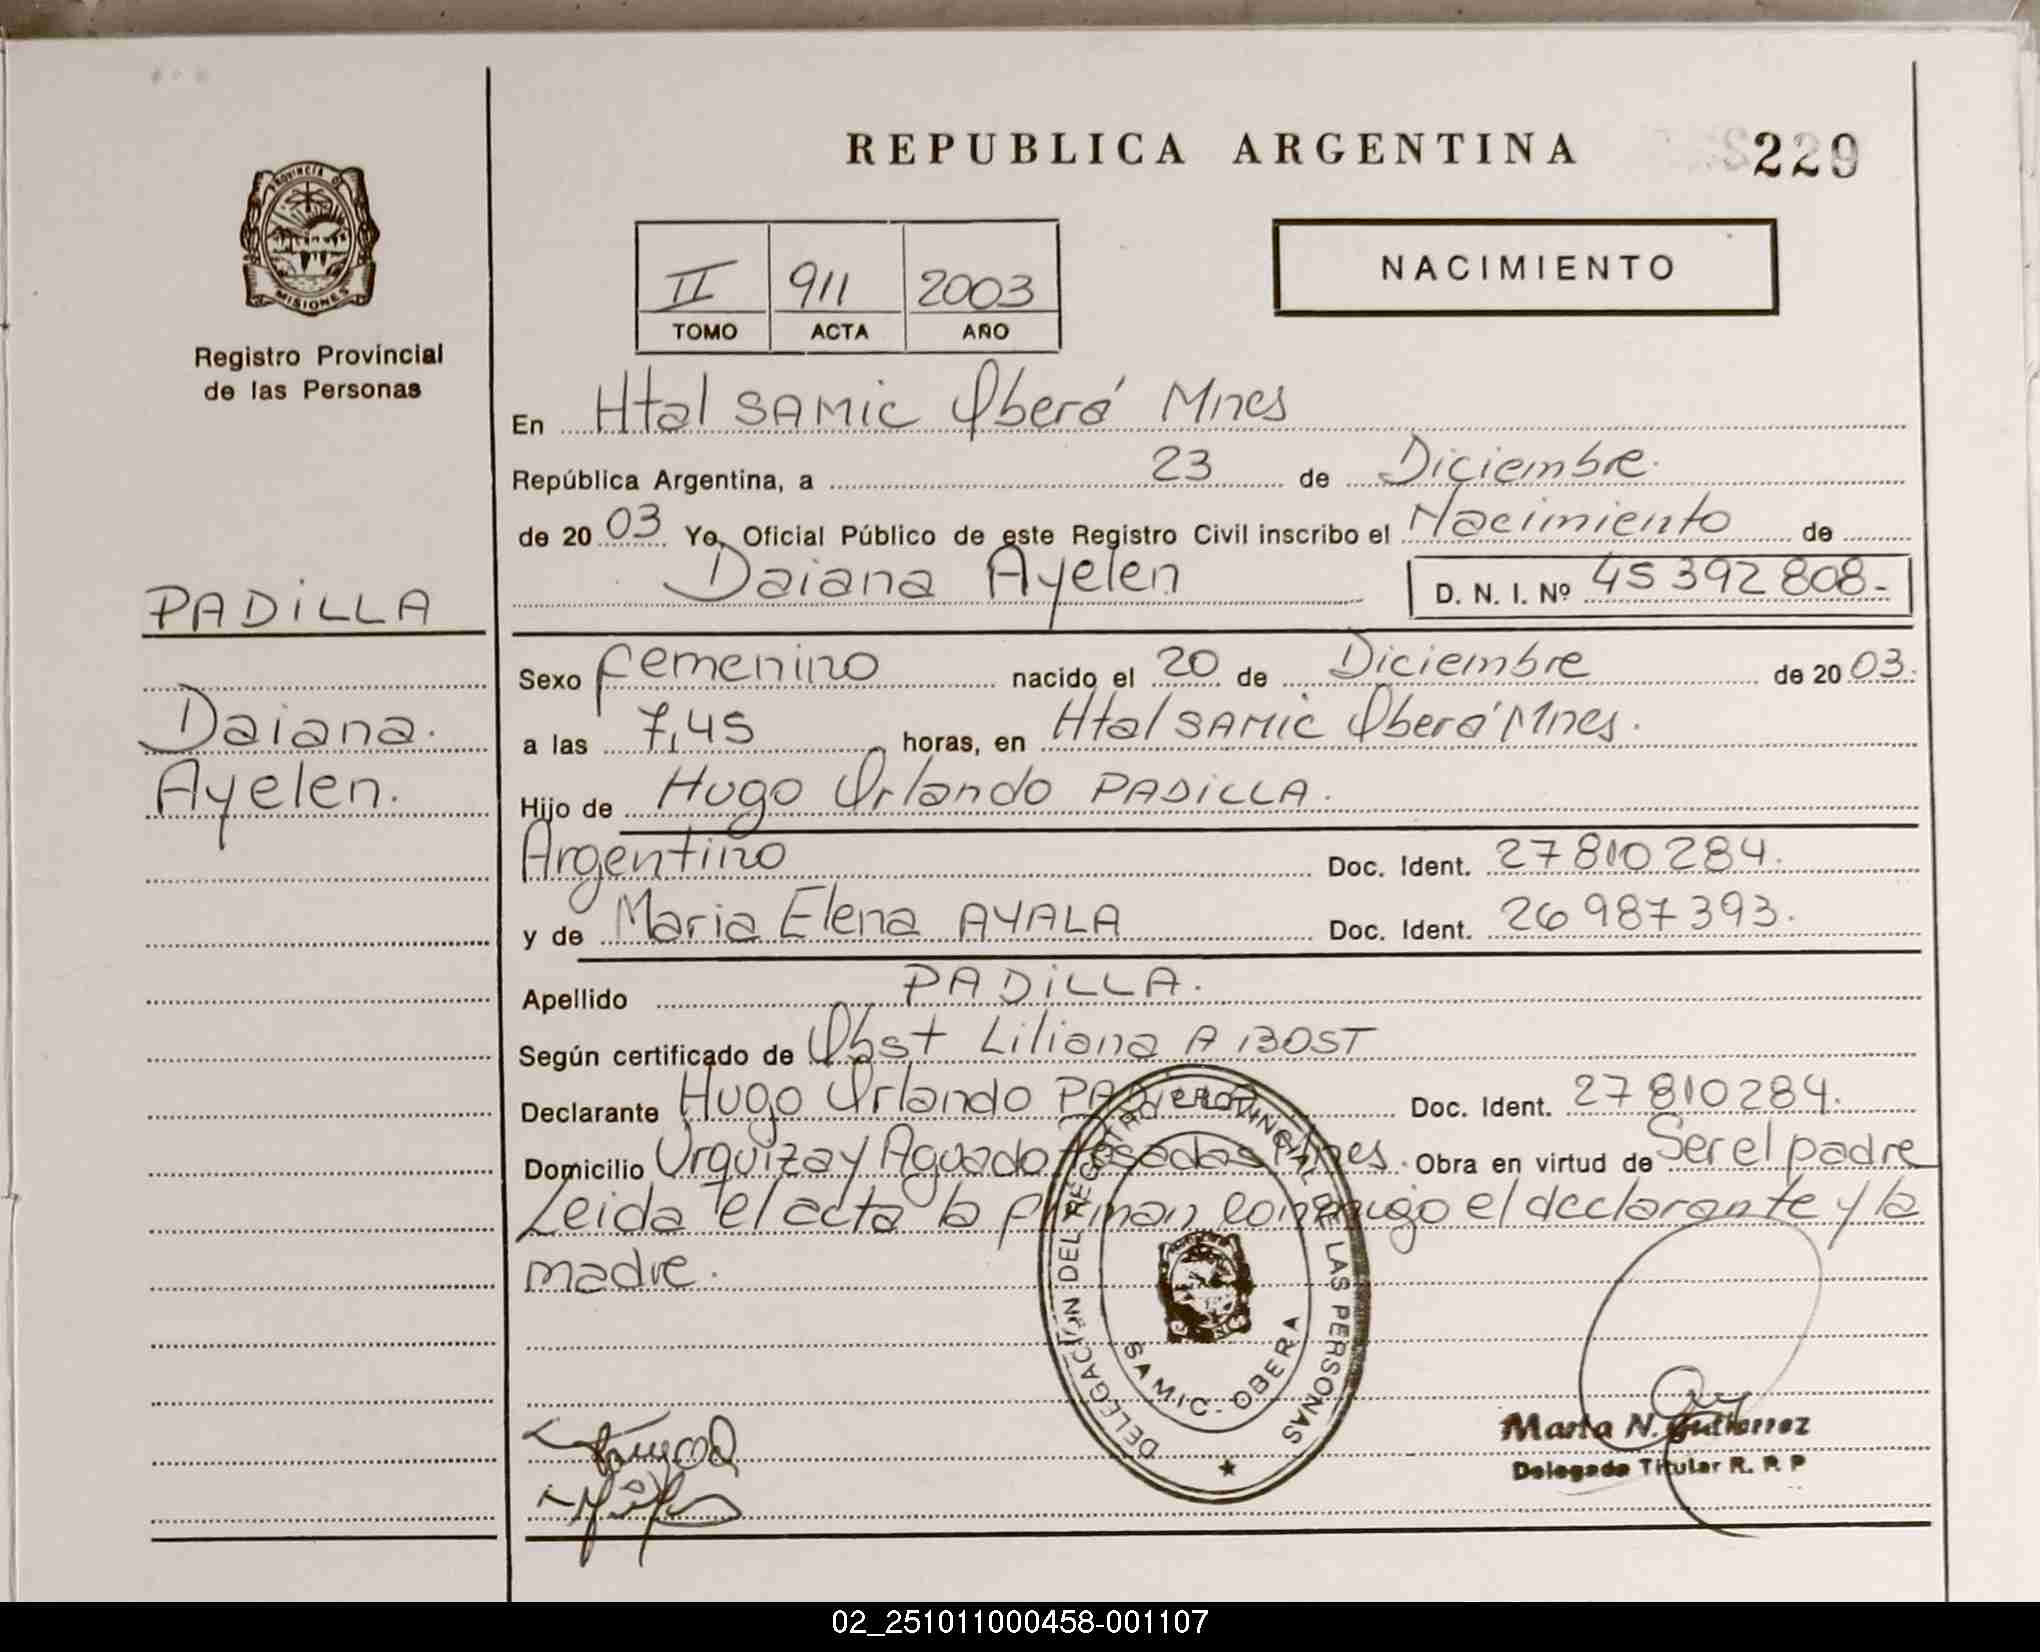 REPUBLICA ARGENTINA
229
PROVINCIA DE
MISIONES
Registro Provincial
de las Personas
II 911 2003
TOMO ACTA AÑO
NACIMIENTO
En Htal SAMIC Oberá Mnes
República Argentina, a 23 de Diciembre.
de 20 03 Yo, Oficial Público de este Registro Civil inscribo el Nacimiento de
Daiana Ayelen D. N. I. Nº 45 392 808-
PADILLA
Daiana.
Ayelen.
Sexo femenino nacido el 20 de Diciembre de 20 03.
a las 7,45 horas, en Htal SAMIC Oberá Mnes.
Hijo de Hugo Orlando PADILLA.
Argentino Doc. Ident. 27 810 284.
y de Maria Elena AYALA Doc. Ident. 26 987 393.
Apellido PADILLA.
Según certificado de Obst Liliana A BOST
Declarante Hugo Orlando PADILLA Doc. Ident. 27 810 284.
Domicilio Urquiza y Aguado Posadas Mnes. Obra en virtud de Ser el padre
Leida el acta la firman conmigo el declarante y la
madre.
DELEGACIÓN DEL REGISTRO PROVINCIAL DE LAS PERSONAS
SAMIC - OBERA
Marta N. Gutierrez
Delegada Titular R. P. P
02_251011000458-001107